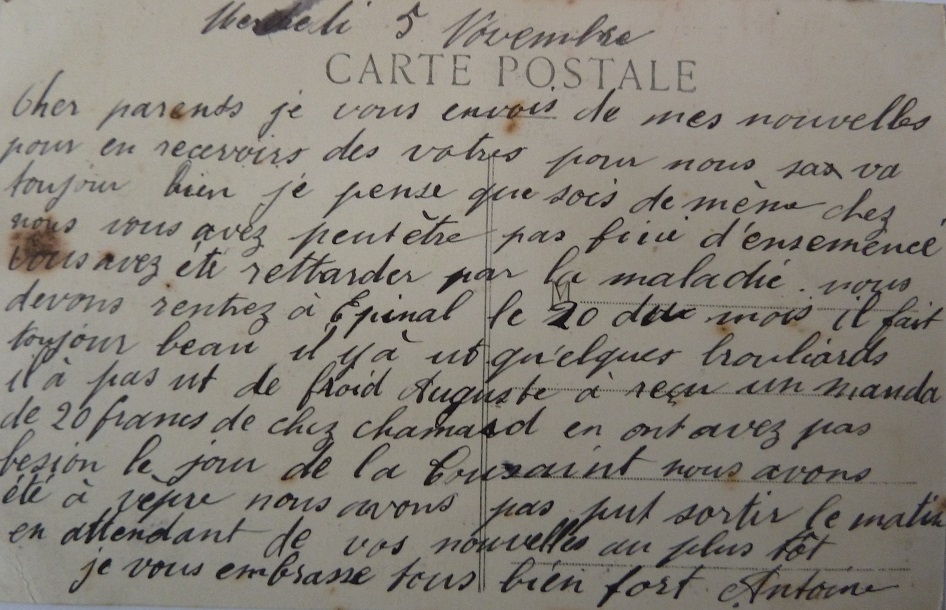 Mercredi 5 Novembre
CARTE POSTALE
Cher parents je vous envois de mes nouvelles
pour en recevoirs des votres pour nous sax va
toujour bien je pense que sois de mème chez
nous vous avez peut être pas finie d'ensemencé
vous avez été rettarder par la maladie. nous
devons rentrez à Epinal le 20 du mois il fait
toujour beau il y à ut qu'elques brouliards
il à pas ut de froid Auguste à reçu un manda
de 20 francs de chez chamard en ont avez pas
besion le jour de la Tousaint nous avons
été à vèpre nous avons pas put sortir le matin
en attendant de vos nouvelles au plus tôt
je vous embrasse tous bien fort Antoine